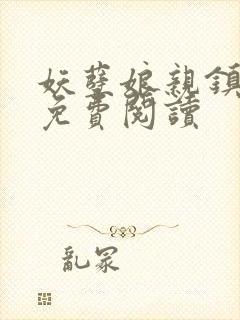 妖孽娘親鎮
免費閱讀
亂冢